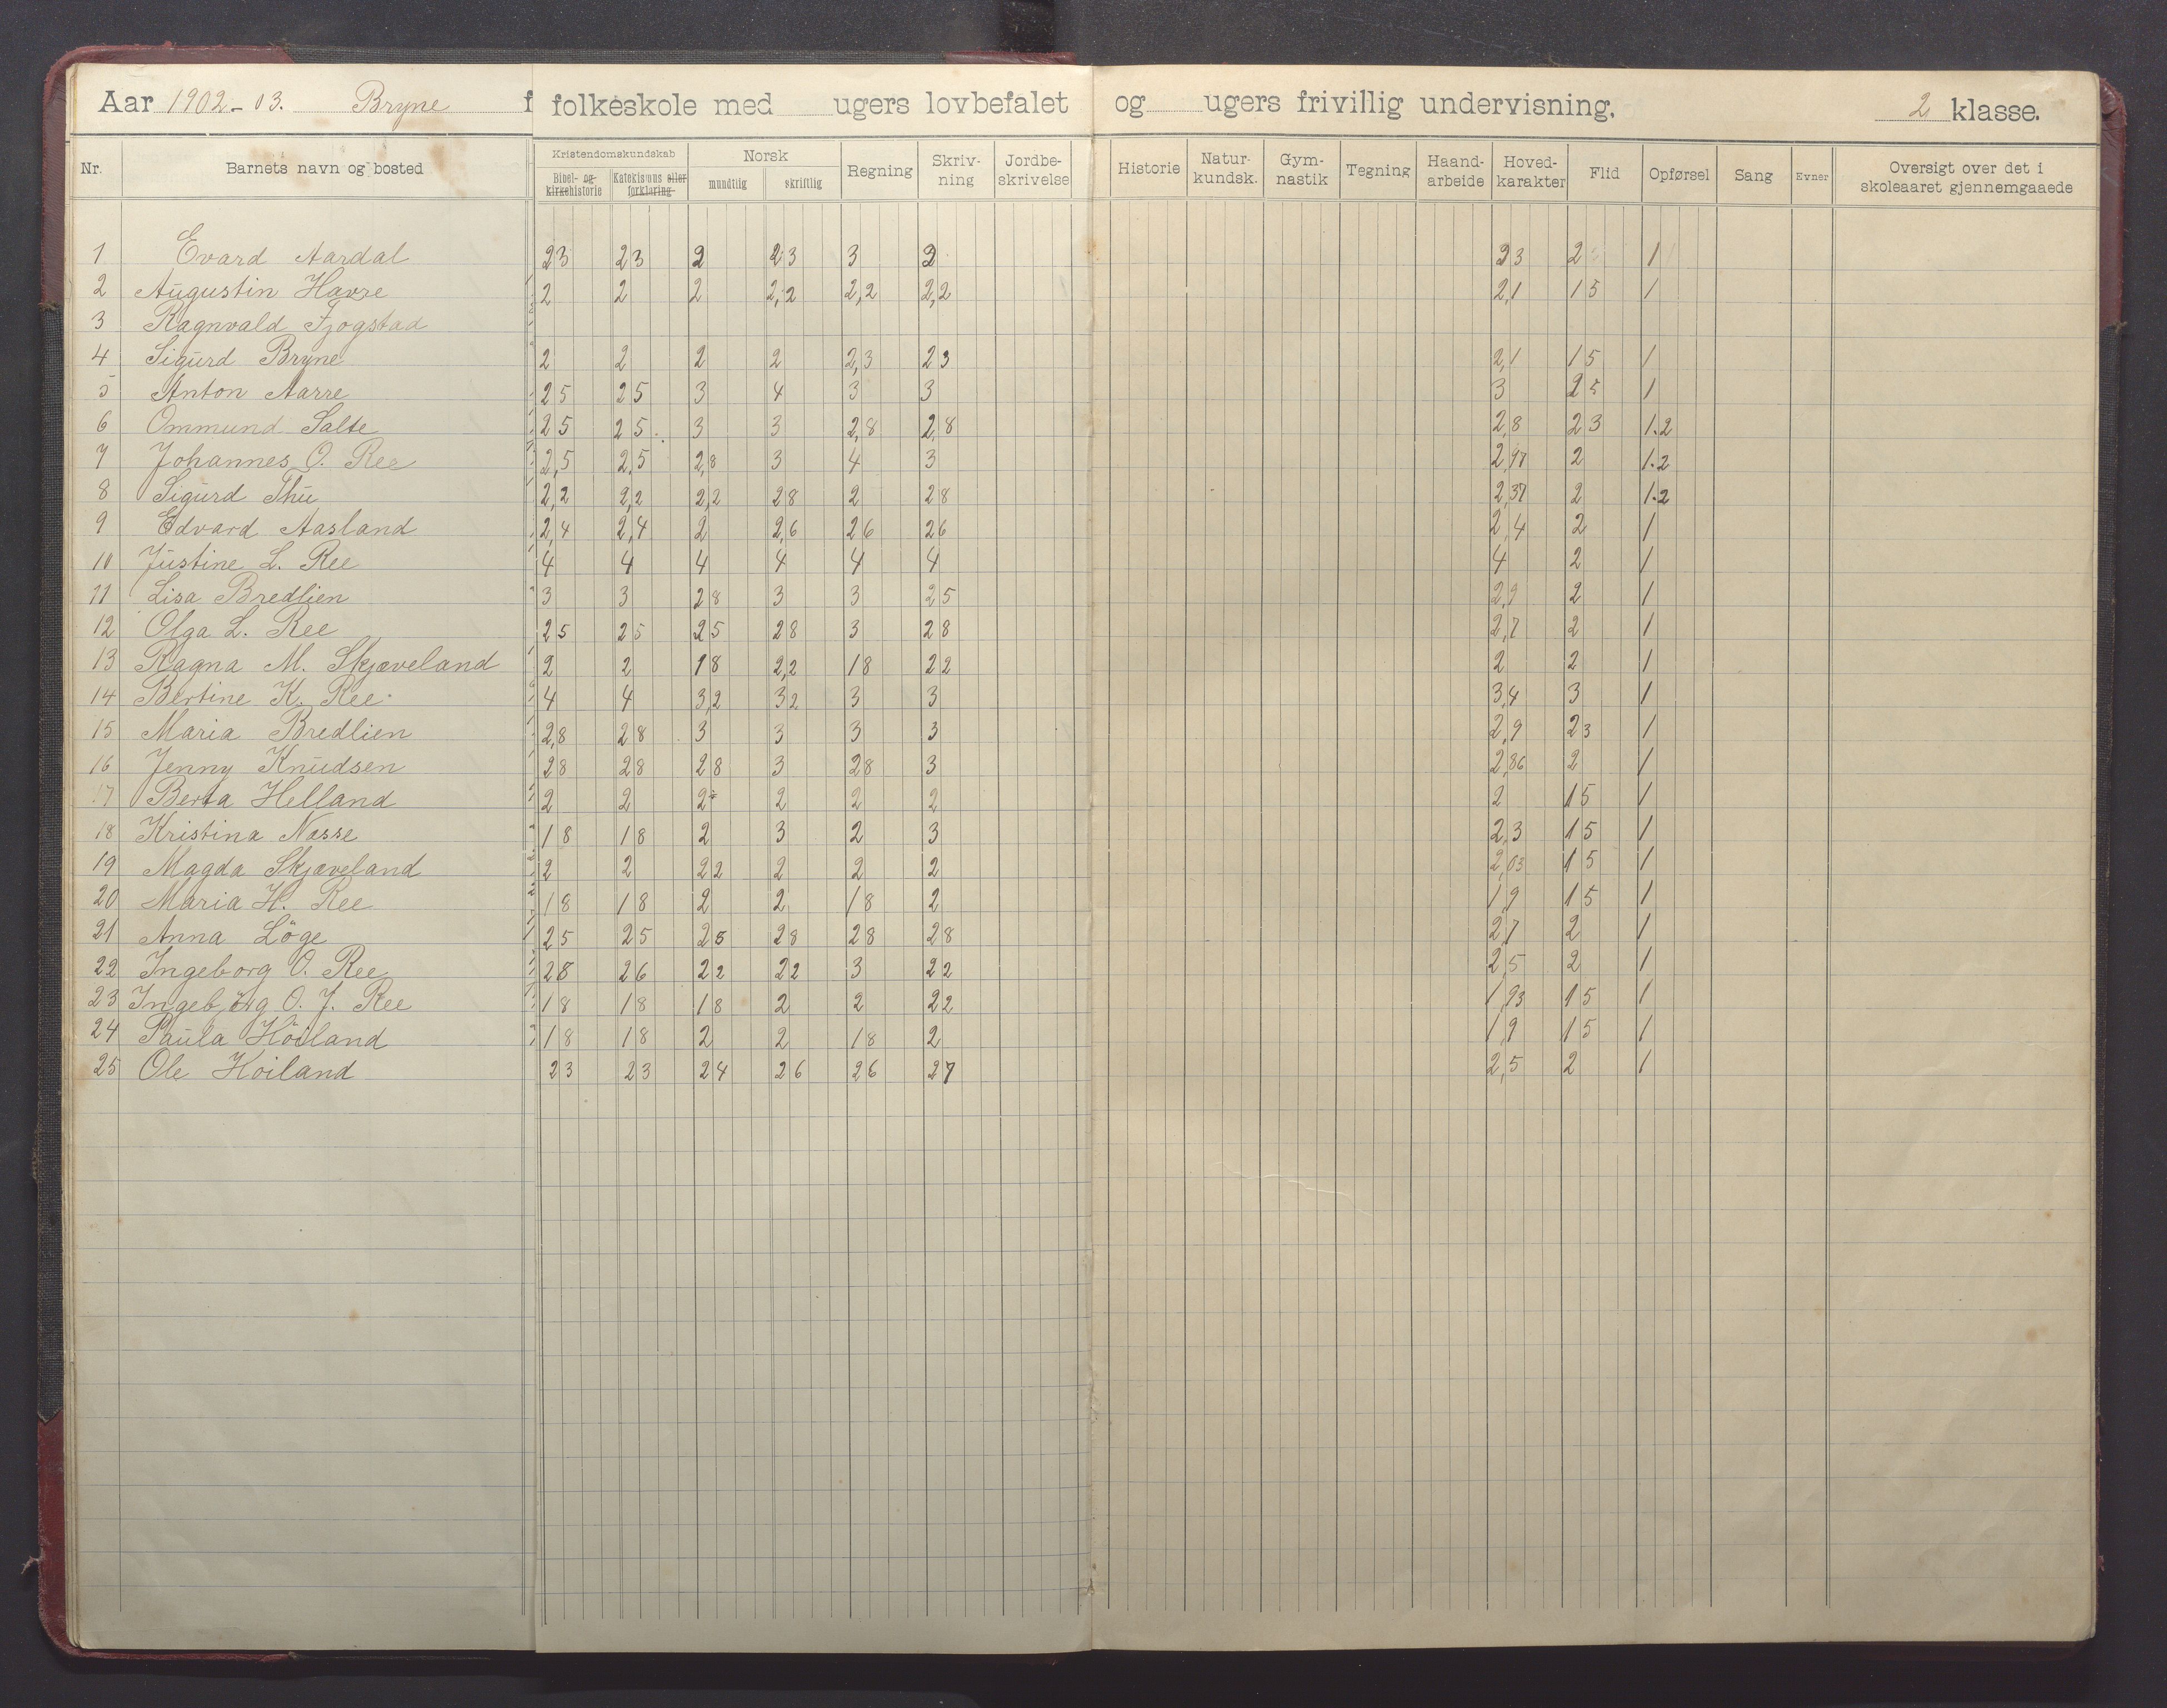 Aar 1902-03. Bryne folkeskole med ugers lovbefalet og ugers frivillig undervisning. 2 klasse.
Nr. Barnets navn og bosted Kristendomskundskab Norsk Regning Skriv-ning Jordbe-skrivelse Historie Natur-kundsk. Gym-nastik Tegning Haand-arbeide Hoved-karakter Flid Opførsel Sang Evner Oversigt over det i skoleaaret gjennemgaaede
Bibel- og kirkehistorie Katekismus eller forklaring mundtlig skriftlig
1 Evard Aardal 23 23 2 2,3 3 2 23 2 1
2 Augustin Havre 2 2 2 2,2 2,2 2,2 2,1 15 1
3 Ragnvald Fjogstad
4 Sigurd Bryne 2 2 2 2 2,3 23 2,1 15 1
5 Anton Aarre 25 25 3 4 3 3 3 25 1
6 Ommund Salte 25 25 3 3 2,8 2,8 2,8 23 1.2
7 Johannes O. Ree 2,5 2,5 2,8 3 4 3 2,97 2 1.2
8 Sigurd Thu 2,2 2,2 2,2 28 2 28 2,37 2 1.2
9 Edvard Aasland 2,4 2,4 2 2,6 26 26 2,4 2 1
10 Justine L. Ree 4 4 4 4 4 4 4 2 1
11 Lisa Bredlien 3 3 28 3 3 25 2,9 2 1
12 Olga L. Ree 25 25 25 28 3 28 2,7 2 1
13 Ragna M. Skjæveland 2 2 18 2,2 18 22 2 2 1
14 Bertine K. Ree 4 4 3,2 32 3 3 3,4 3 1
15 Maria Bredlien 2,8 28 3 3 3 3 2,9 23 1
16 Jenny Knudsen 28 28 28 3 28 3 2,86 2 1
17 Berta Helland 2 2 2 2 2 2 2 15 1
18 Kristina Næsse 18 18 2 3 2 3 2,3 15 1
19 Magda Skjæveland 2 2 22 2 2 2 2,03 15 1
20 Maria H. Ree 18 18 2 2 18 2 1,9 15 1
21 Anna Löge 25 25 25 28 28 28 2,7 2 1
22 Ingeborg O. Ree 28 26 22 22 3 22 2,5 2 1
23 Ingebjörg O. J. Ree 18 18 18 2 2 22 1,93 15 1
24 Paula Höiland 18 18 2 2 18 2 1,9 15 1
25 Ole Höiland 23 23 24 26 26 27 2,5 2 1